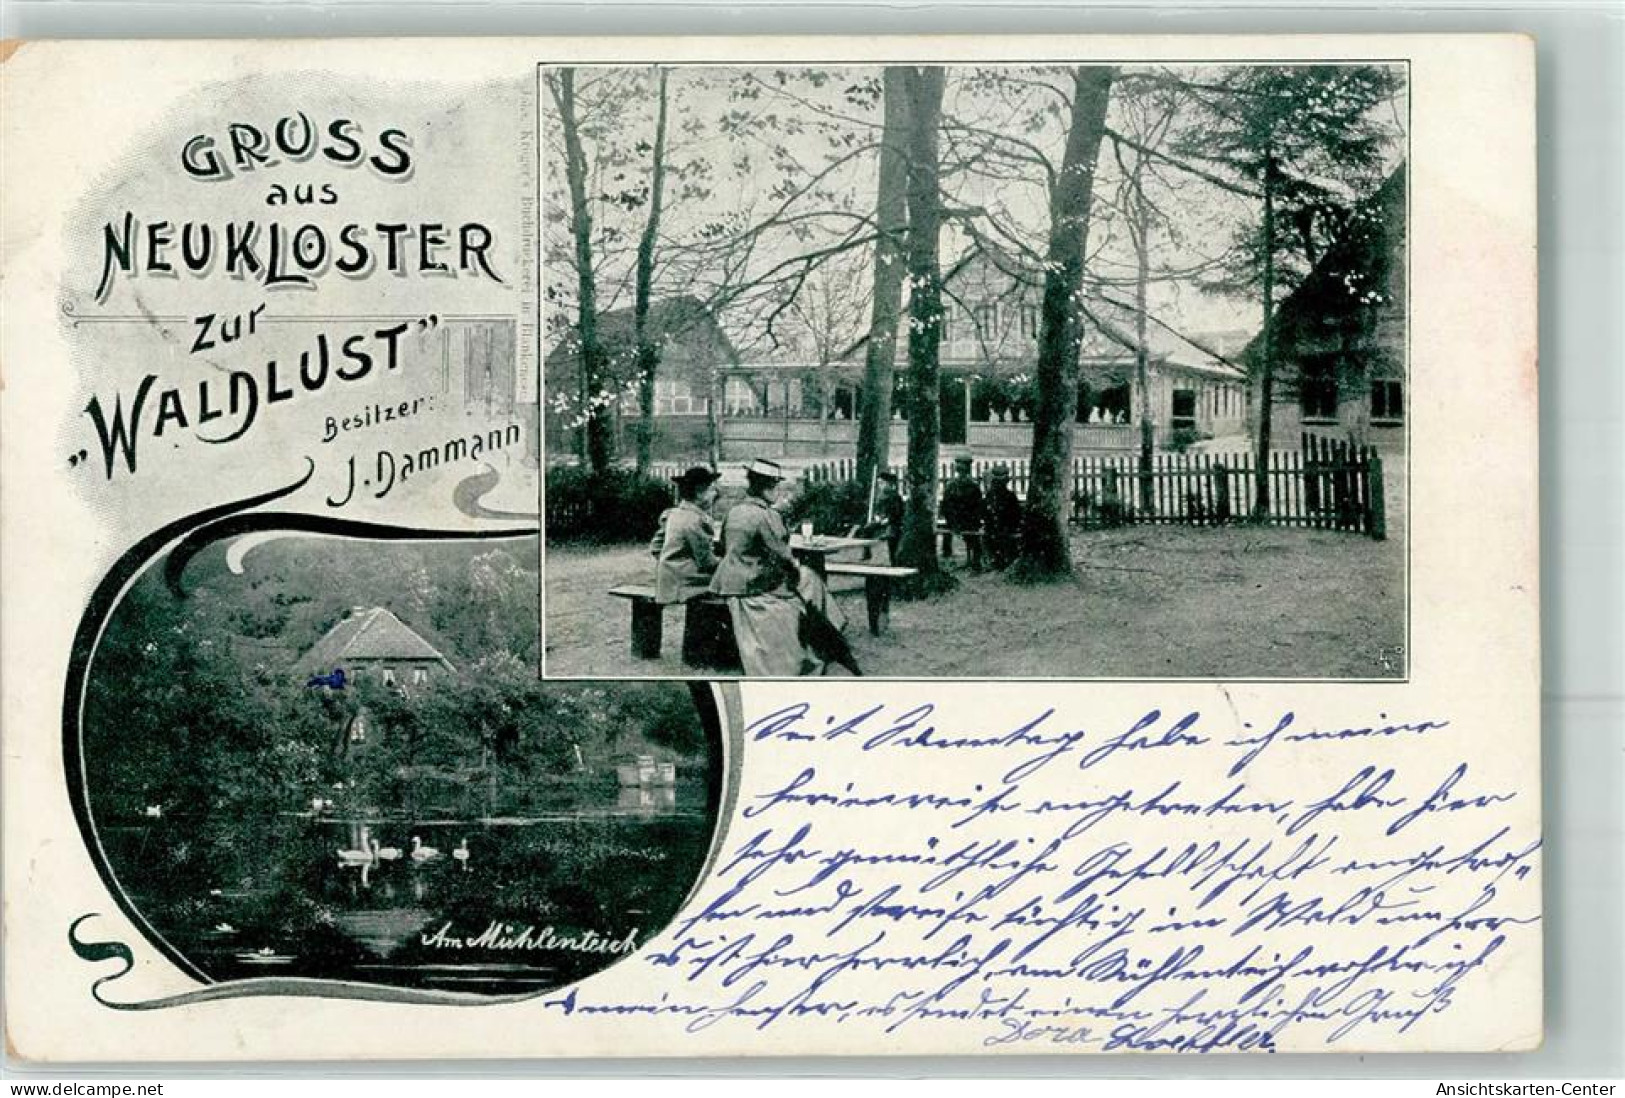 GRUSS
aus
NEUKLOSTER
zur
"WALDLUST"
Besitzer:
J. Dammann
Am Mühlenteich
Seit Samstag habe ich meine
Ferienreise angetreten, habe hier
sehr gemüthliche Gesellschaft angetrof-
fen und streife tüchtig im Wald umher
es ist hier herrlich, am Mühlenteich wohne ich
mein Fenster, es sendet einen herzlichen Gruß
Dora
Ansichtskarten-Center